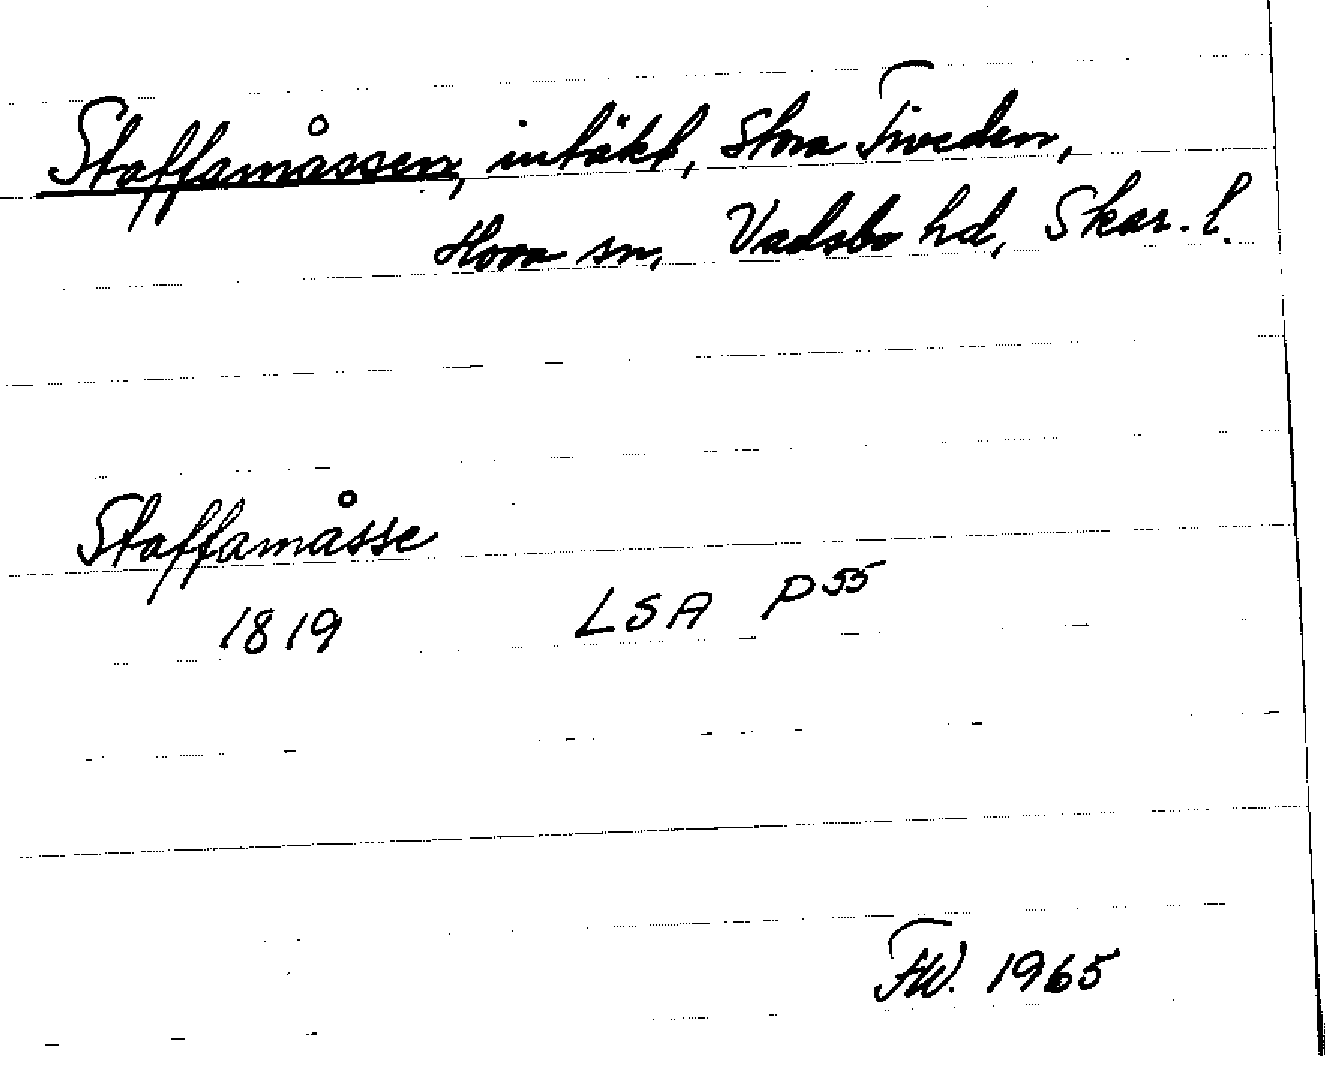 Staffamåssen, intäkt, Stora Tiveden,
Hova sn, Vadsbo hd, Skar. l.
Staffamåsse
1819 LSA P 55
FW. 1965